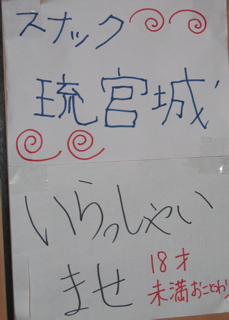 スナック
琉宮城
いらっしゃい
ませ
18才
未満おことわり